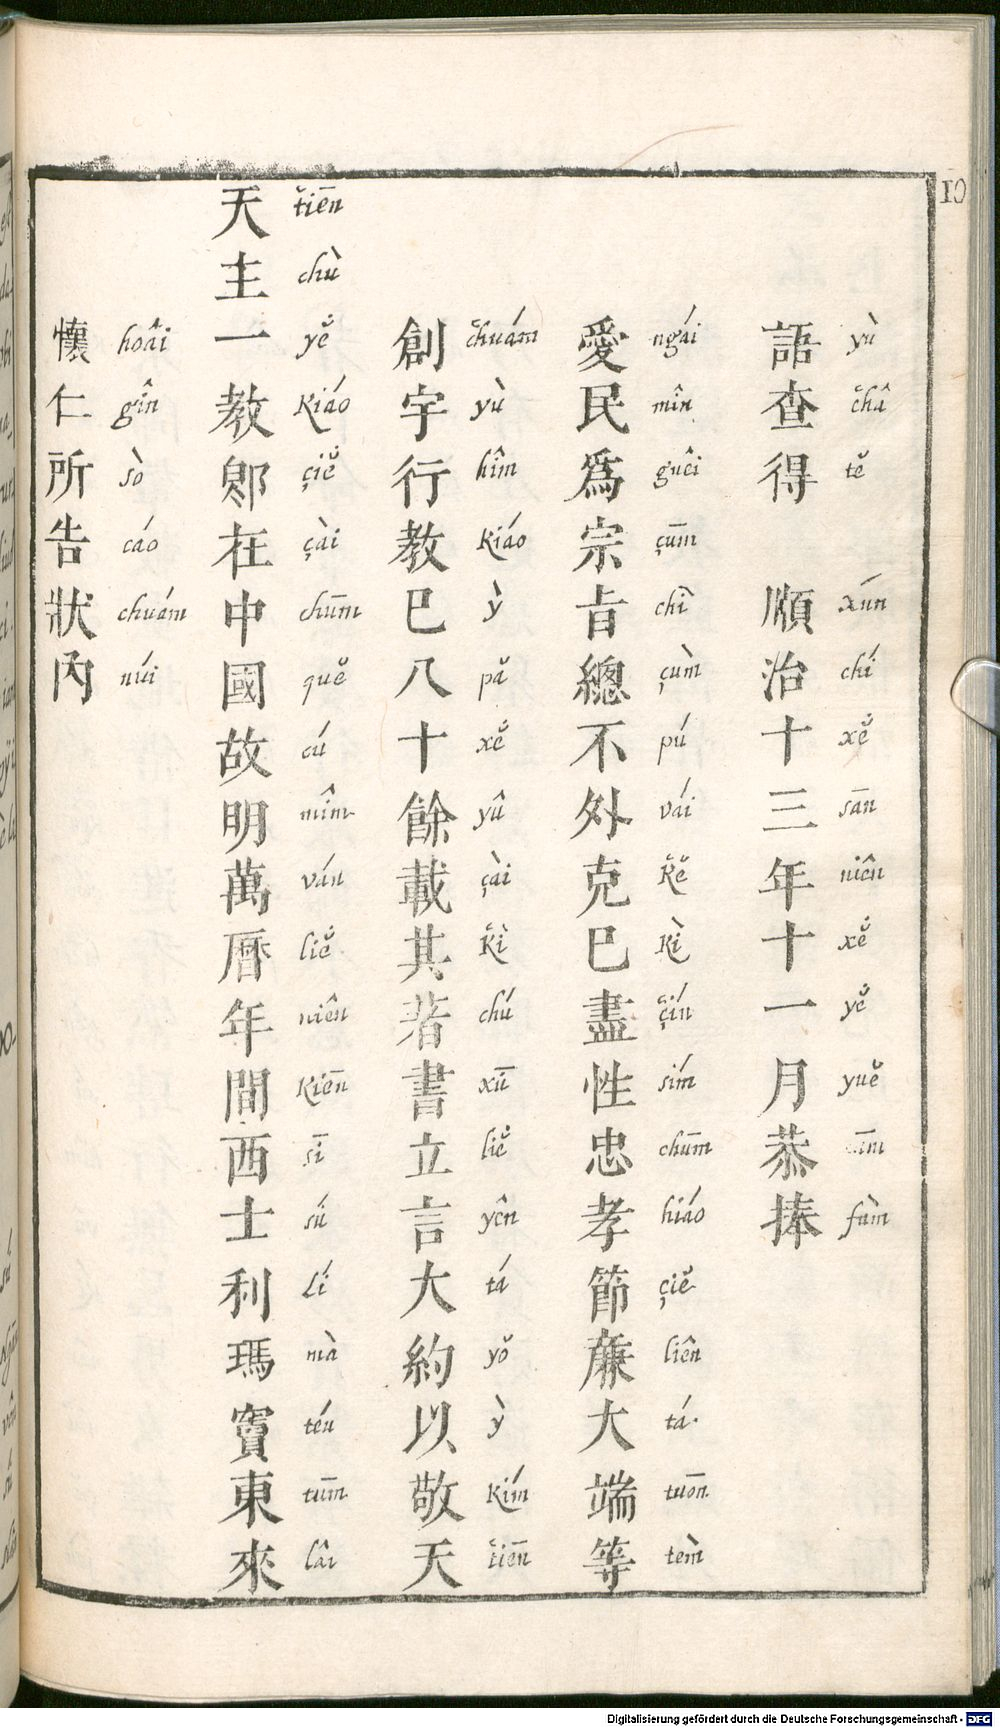 10
語查得 順治十三年十一月恭捧
yù čhâ tě xún chí xě̇ sān niên xě̇ yě̇ yuě fùm
愛民爲宗旨總不外克己盡性忠孝節廉大端等
ngái mîn guêi çūm chì çùm pú vái ǩě kì çín sím chūm hiáo çiě liên tá tuōn tèm
創宇行教已八十餘載其著書立言大約以敬天
čhuám yù hîm kiáo ỳ pǎ xě̇ yû çài ǩì chú xū liě̇ yên tá yǒ ỳ kím ťiēn
天主一教卽在中國故明萬曆年間西士利瑪竇東來
ťiēn chù yě̇ kiáo çiě̇ çài chūm quě cú mîm ván liě̇ niên kiēn sī sú lí mà téu tūm lâi
懷仁所告狀內
hoâi gîn sò cáo chuám núi
Digitalisierung gefördert durch die Deutsche Forschungsgemeinschaft - DFG